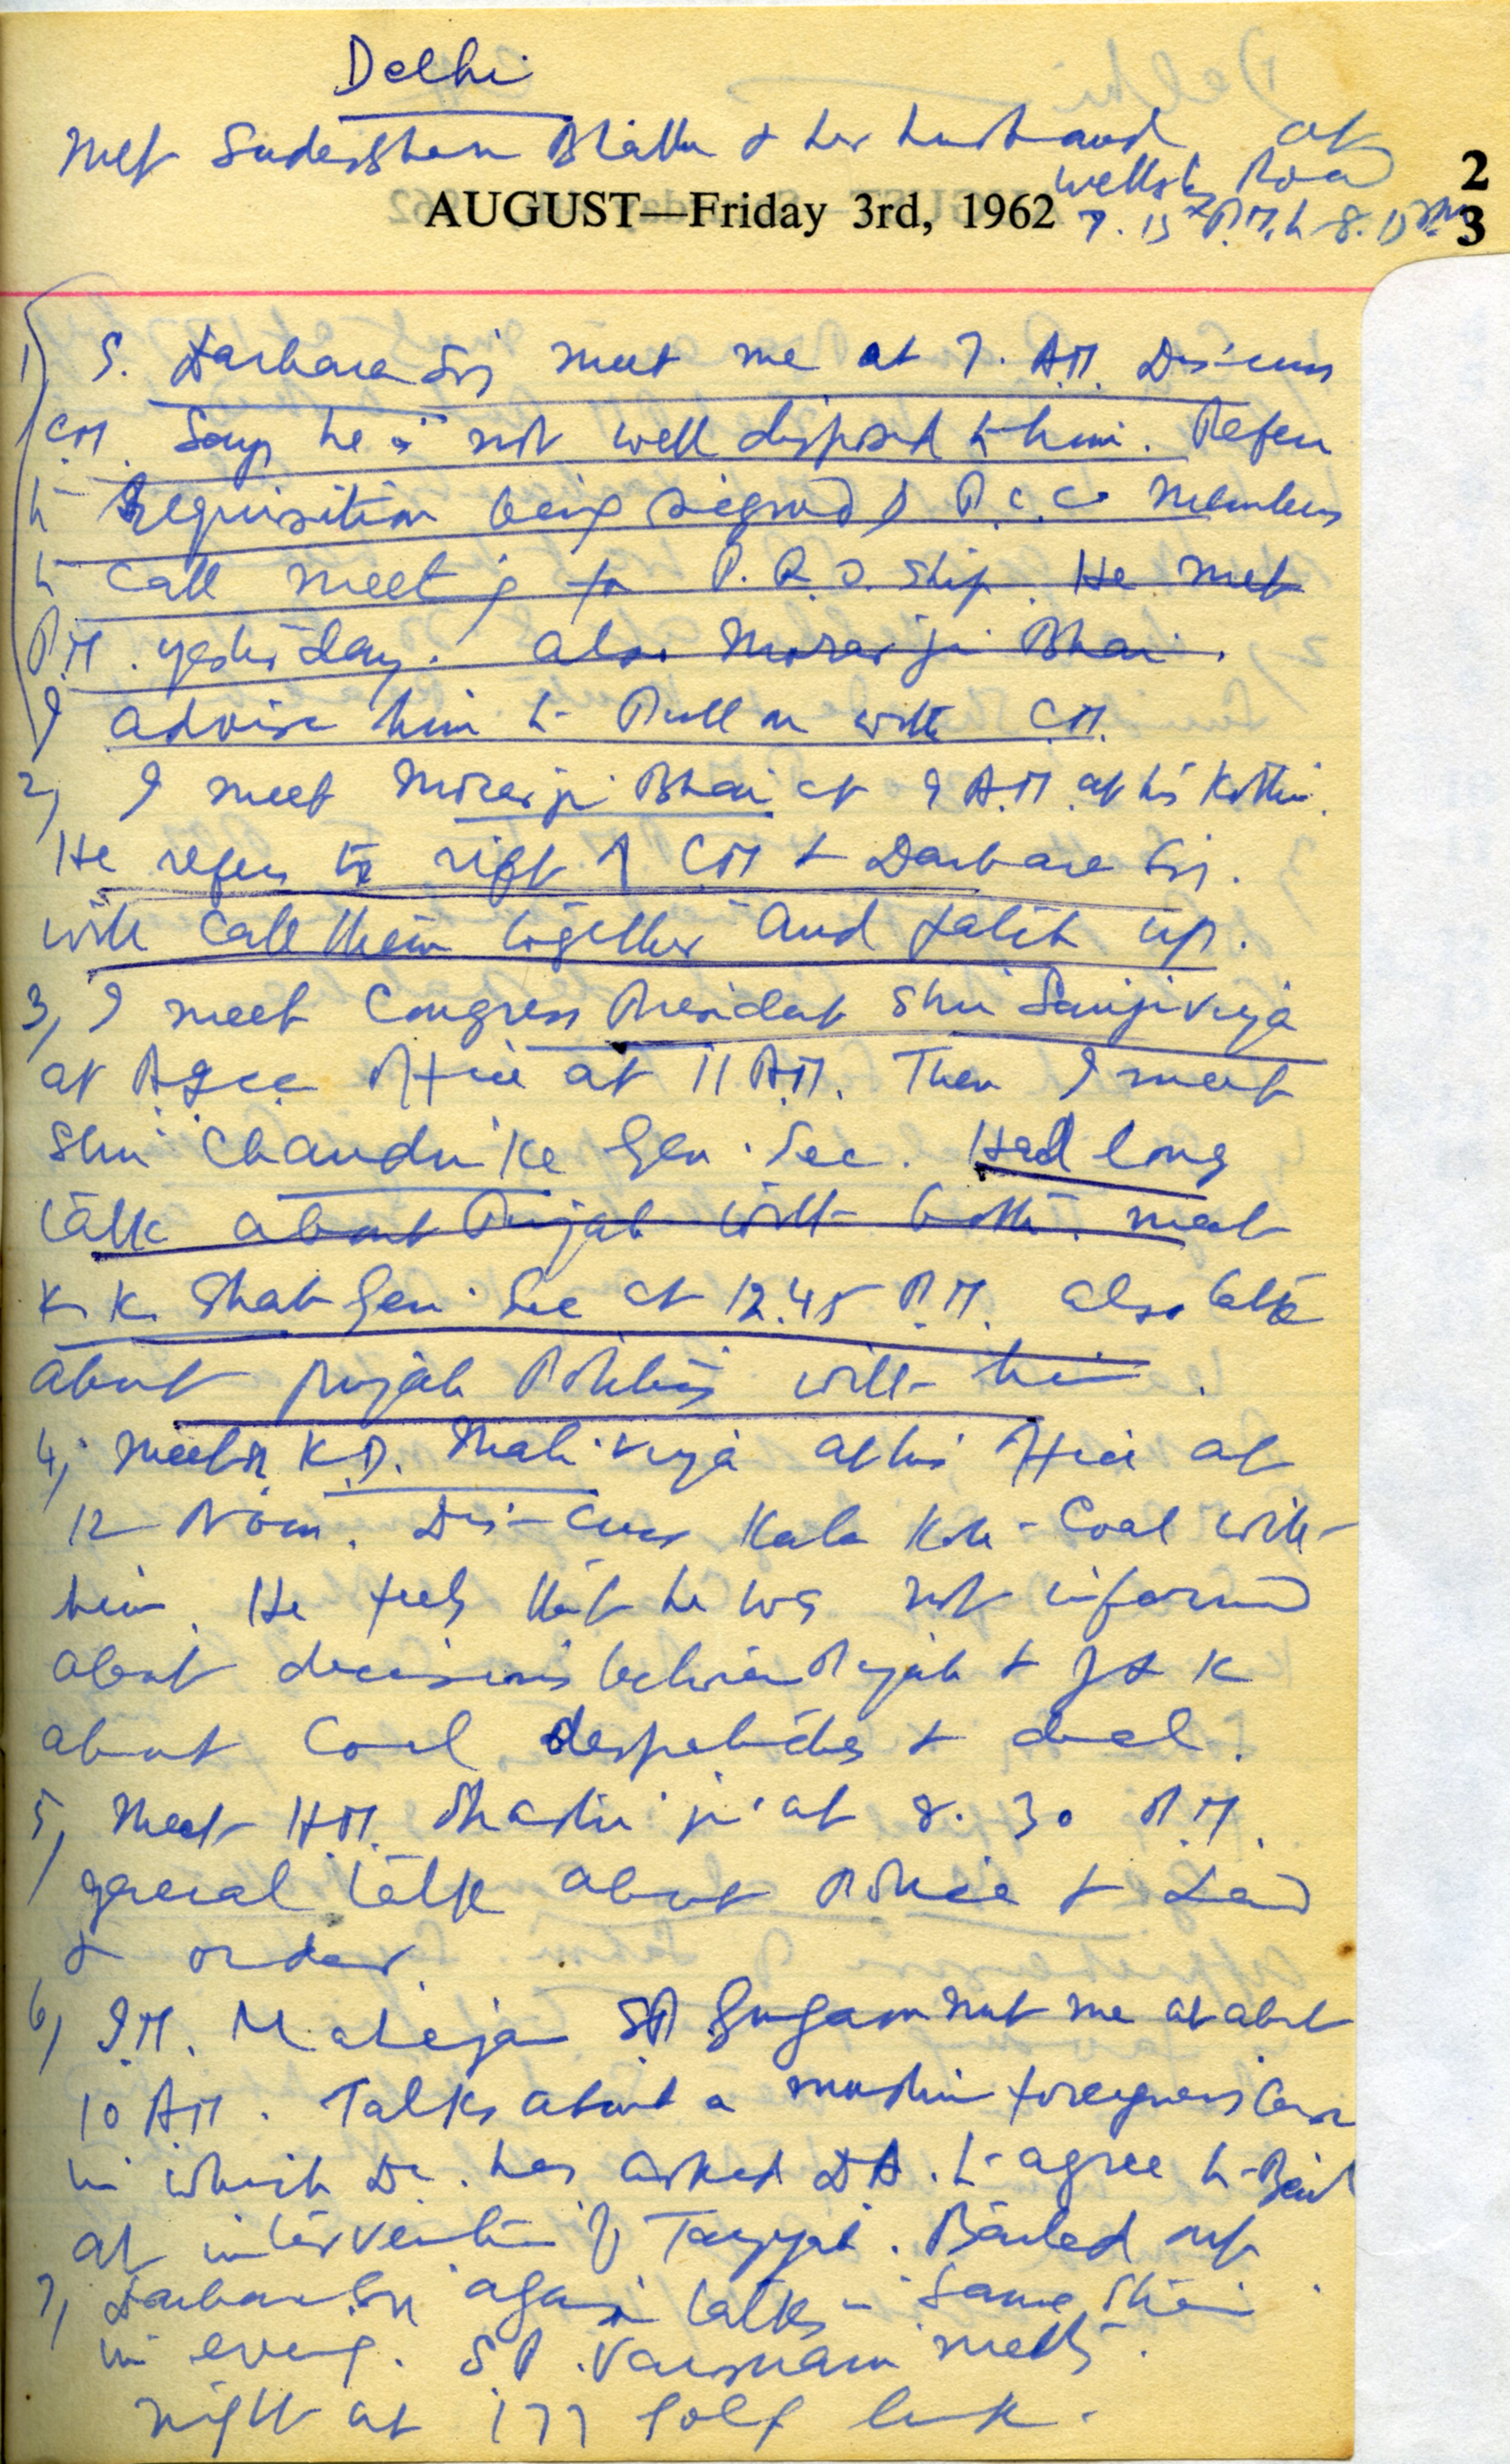 Delhi
Met Sudershan & her husband at
Road
7.15 P.M. to 8.15 P.M.
AUGUST—Friday 3rd, 1962
2
3
1) S. Darbara Sing meet me at 7. A.M. Discuss
C.M. Says he is not well disposed to him. Refers
to requisition being signed by P.C.C. members
to call meeting for ship. He met
P.M. yesterday. also Morarji Bhai.
I advise him to Pull on with C.M.
2) I meet Morarji Bhai at 9 A.M. at his Kothi.
He refers to rift of CM & Darbara Sing.
will call them together and patch up.
3) I meet Congress President Shri Sanjivaya
at Office at 11 A.M. Then I meet
Shri Chandrike Gen. Sec. Had long
talk about Punjab with both. meet
K. K. Shah Gen. Sec at 12.45 P.M. also talk
about Punjab Politics with him.
4) Meet K.D. Malviya at his Office at
12 Noon. Discuss Kala Kote Coal with
him. He feels that he was not informed
about decisions between Punjab & J & K
about Coal despatches & deal.
5) Meet H.M. Shastri ji at 8.30 P.M.
general talk about Police & Law
& order.
6) I.M. Mahajan SP Gurgaon met me at about
10 A.M. Talks about a muslim foreigners case
in which Dc. has asked DA. to agree to Bail
at intervention of Tayyab. Bailed out
7) Darbara Sing again talks in same
in evening. S.P. meets
night at 177 Golf link.